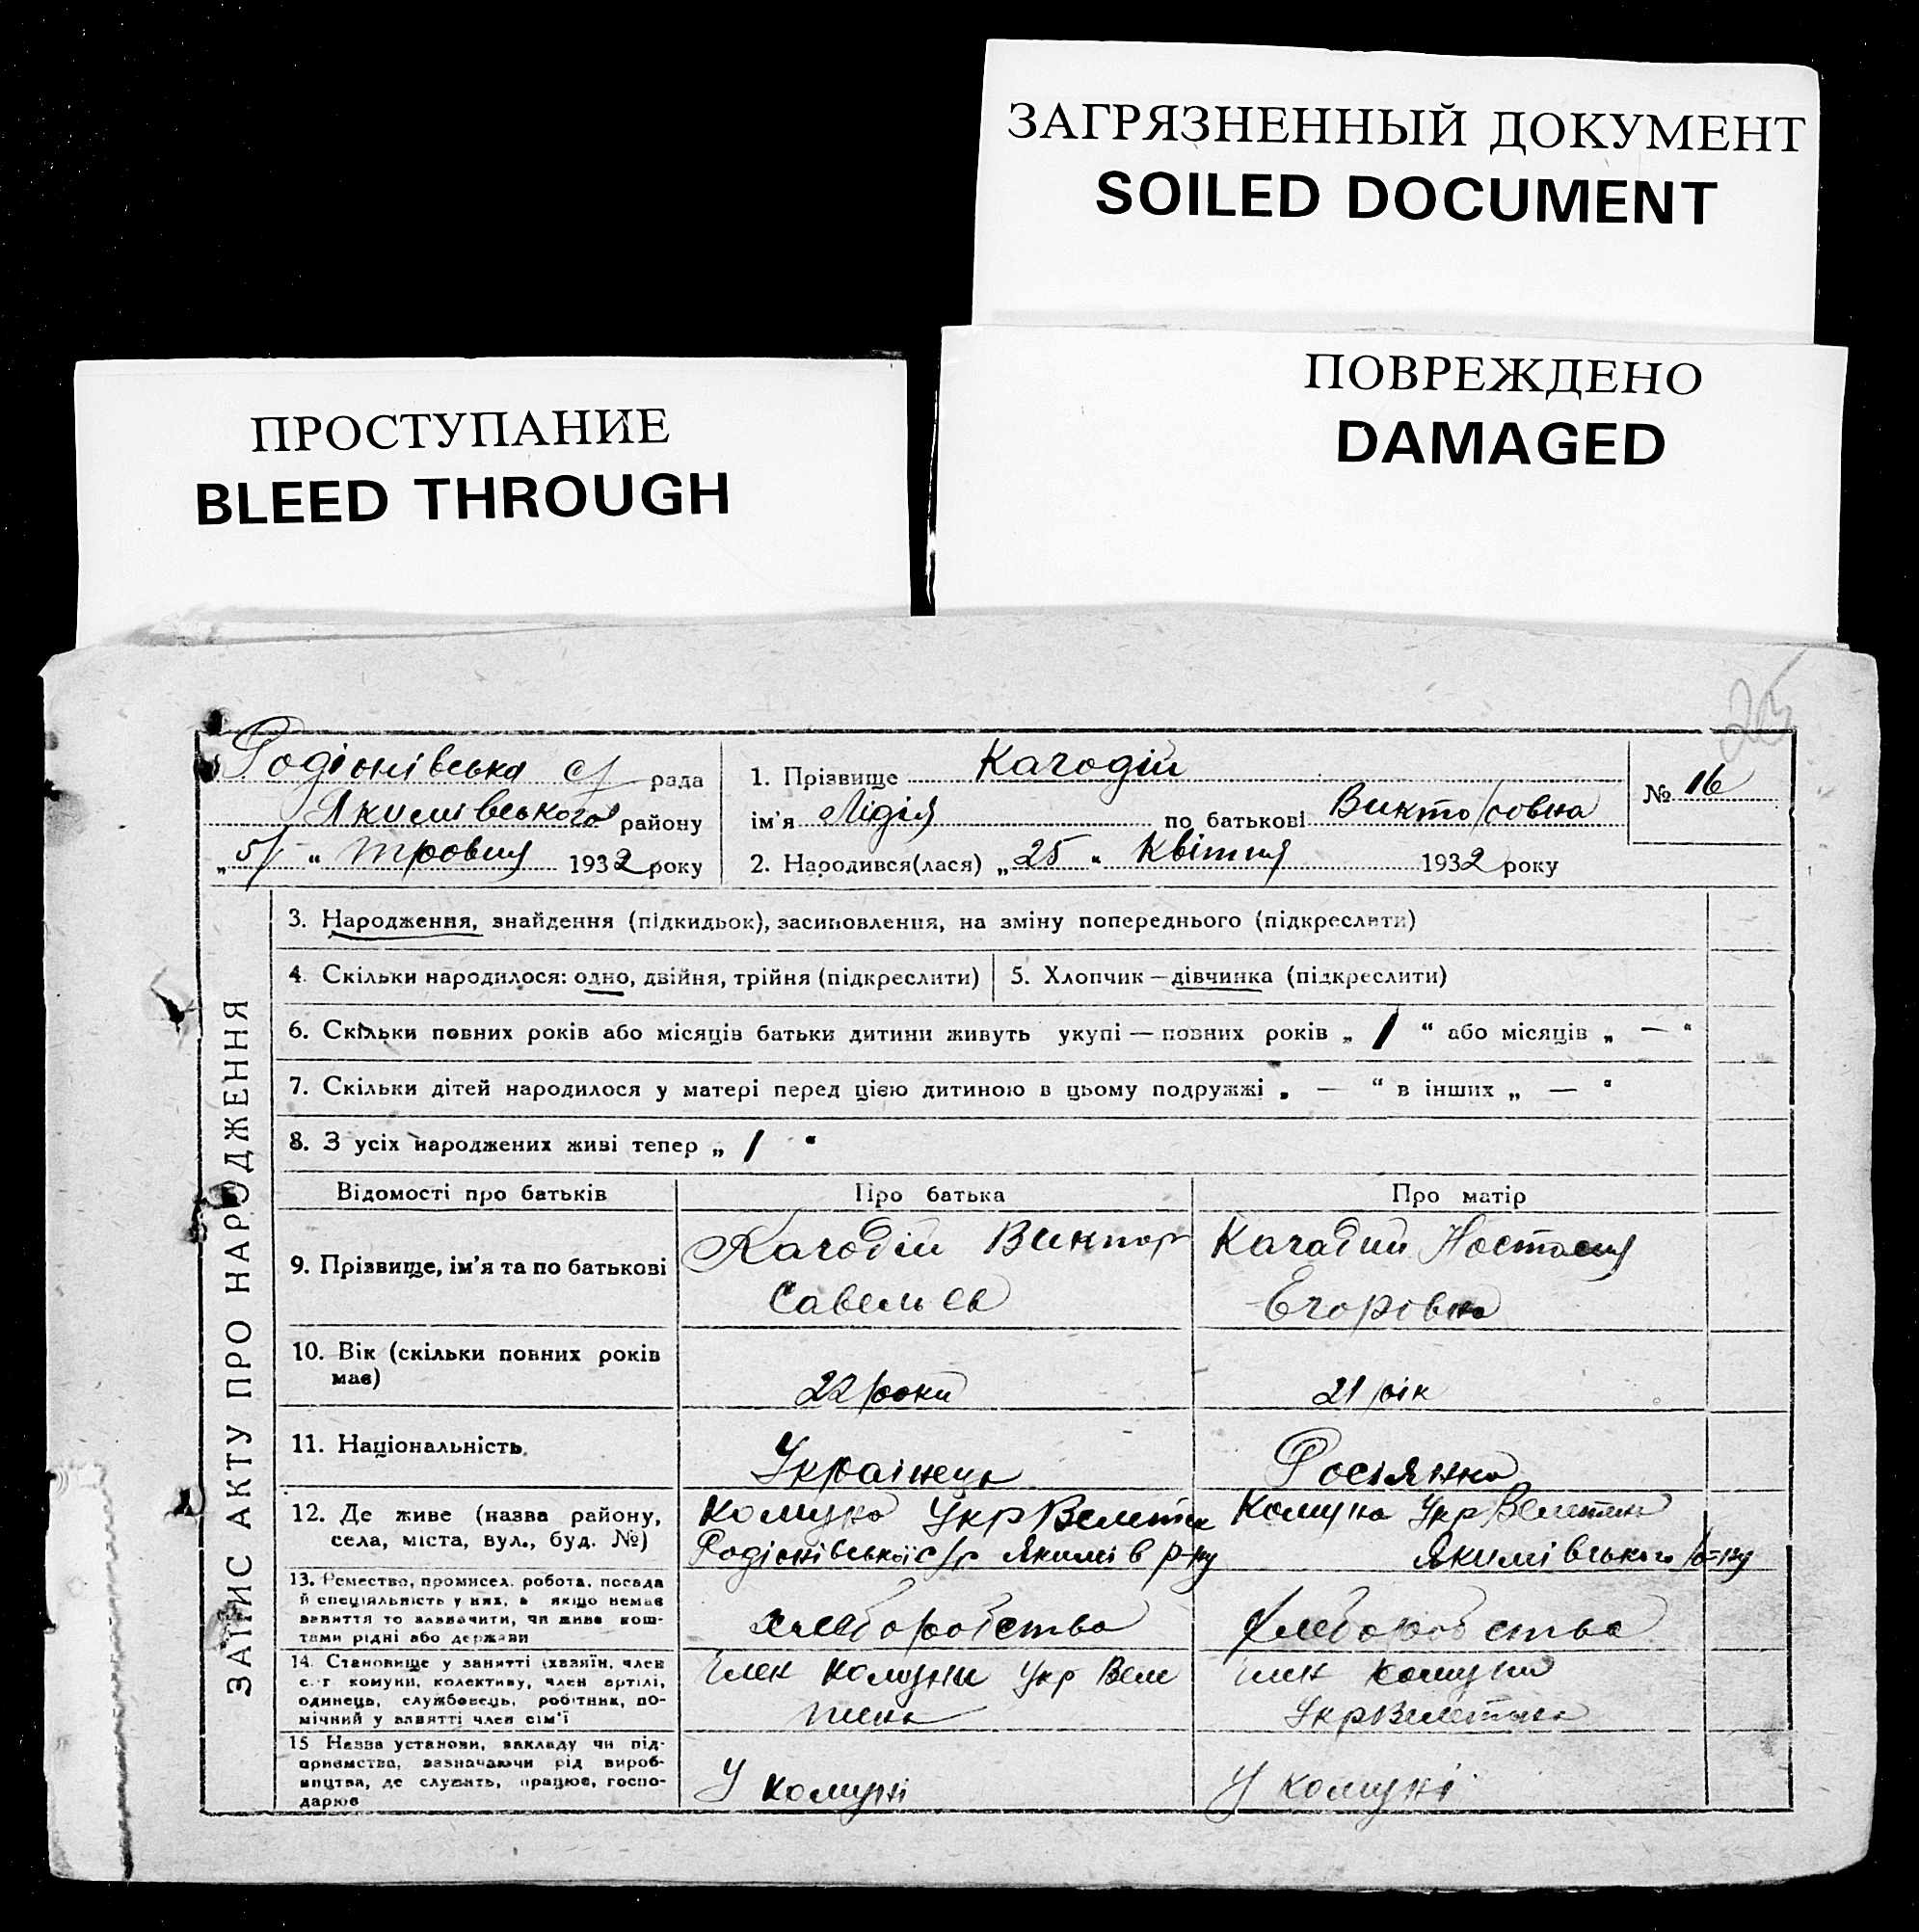 ЗАГРЯЗНЕННЫЙ ДОКУМЕНТ
SOILED DOCUMENT
ПОВРЕЖДЕНО
DAMAGED
ПРОСТУПАНИЕ
BLEED THROUGH
Родіонівська с/ рада
Якимівського району
„5/“ Травня 1932 року
1. Прізвище Кагодій
ім'я Лідія по батькові Викторовна
2. Народився(лася) „25“ Квітня 1932 року
№ 16
ЗАПИС АКТУ ПРО НАРОДЖЕННЯ
3. Народження, знайдення (підкидьок), засиновлення, на зміну попереднього (підкреслити)
4. Скільки народилося: одно, двійня, трійня (підкреслити)
5. Хлопчик — дівчинка (підкреслити)
6. Скільки повних років або місяців батьки дитини живуть укупі — повних років „ 1 “ або місяців „ — “
7. Скільки дітей народилося у матері перед цією дитиною в цьому подружжі „ — “ в інших „ — “
8. З усіх народжених живі тепер „ 1 “
Відомості про батьків Про батька Про матір
9. Прізвище, ім'я та по батькові
Кагодій Виктор
Савельев
Кагадий Настасия
Егоровна
10. Вік (скільки повних років
має)
22 роки
21 рік
11. Національність
Українець
Росіянка
12. Де живе (назва району,
села, міста, вул., буд. №)
Комуна
Родіонівської с/р Якимів р-ну
Комуна
Якимівського р-ну
13. Ремество, промисел, робота, посада
й спеціяльність у них, а якщо немає
заняття то зазначити, чи живе кош-
тами рідні або держави
хлеборобство
хлеборобство
14. Становище у занятті (хазяїн, член
с.-г комуни, колективу, член артілі,
одинець, службовець, робітник, по-
мічний у занятті член сім'ї
Член комуни Укр
член комуни
15 Назва установи, закладу чи під-
приємства, зазначаючи рід вироб-
ництва, де служить, працює, госпо-
дарює
У комуні
У комуні